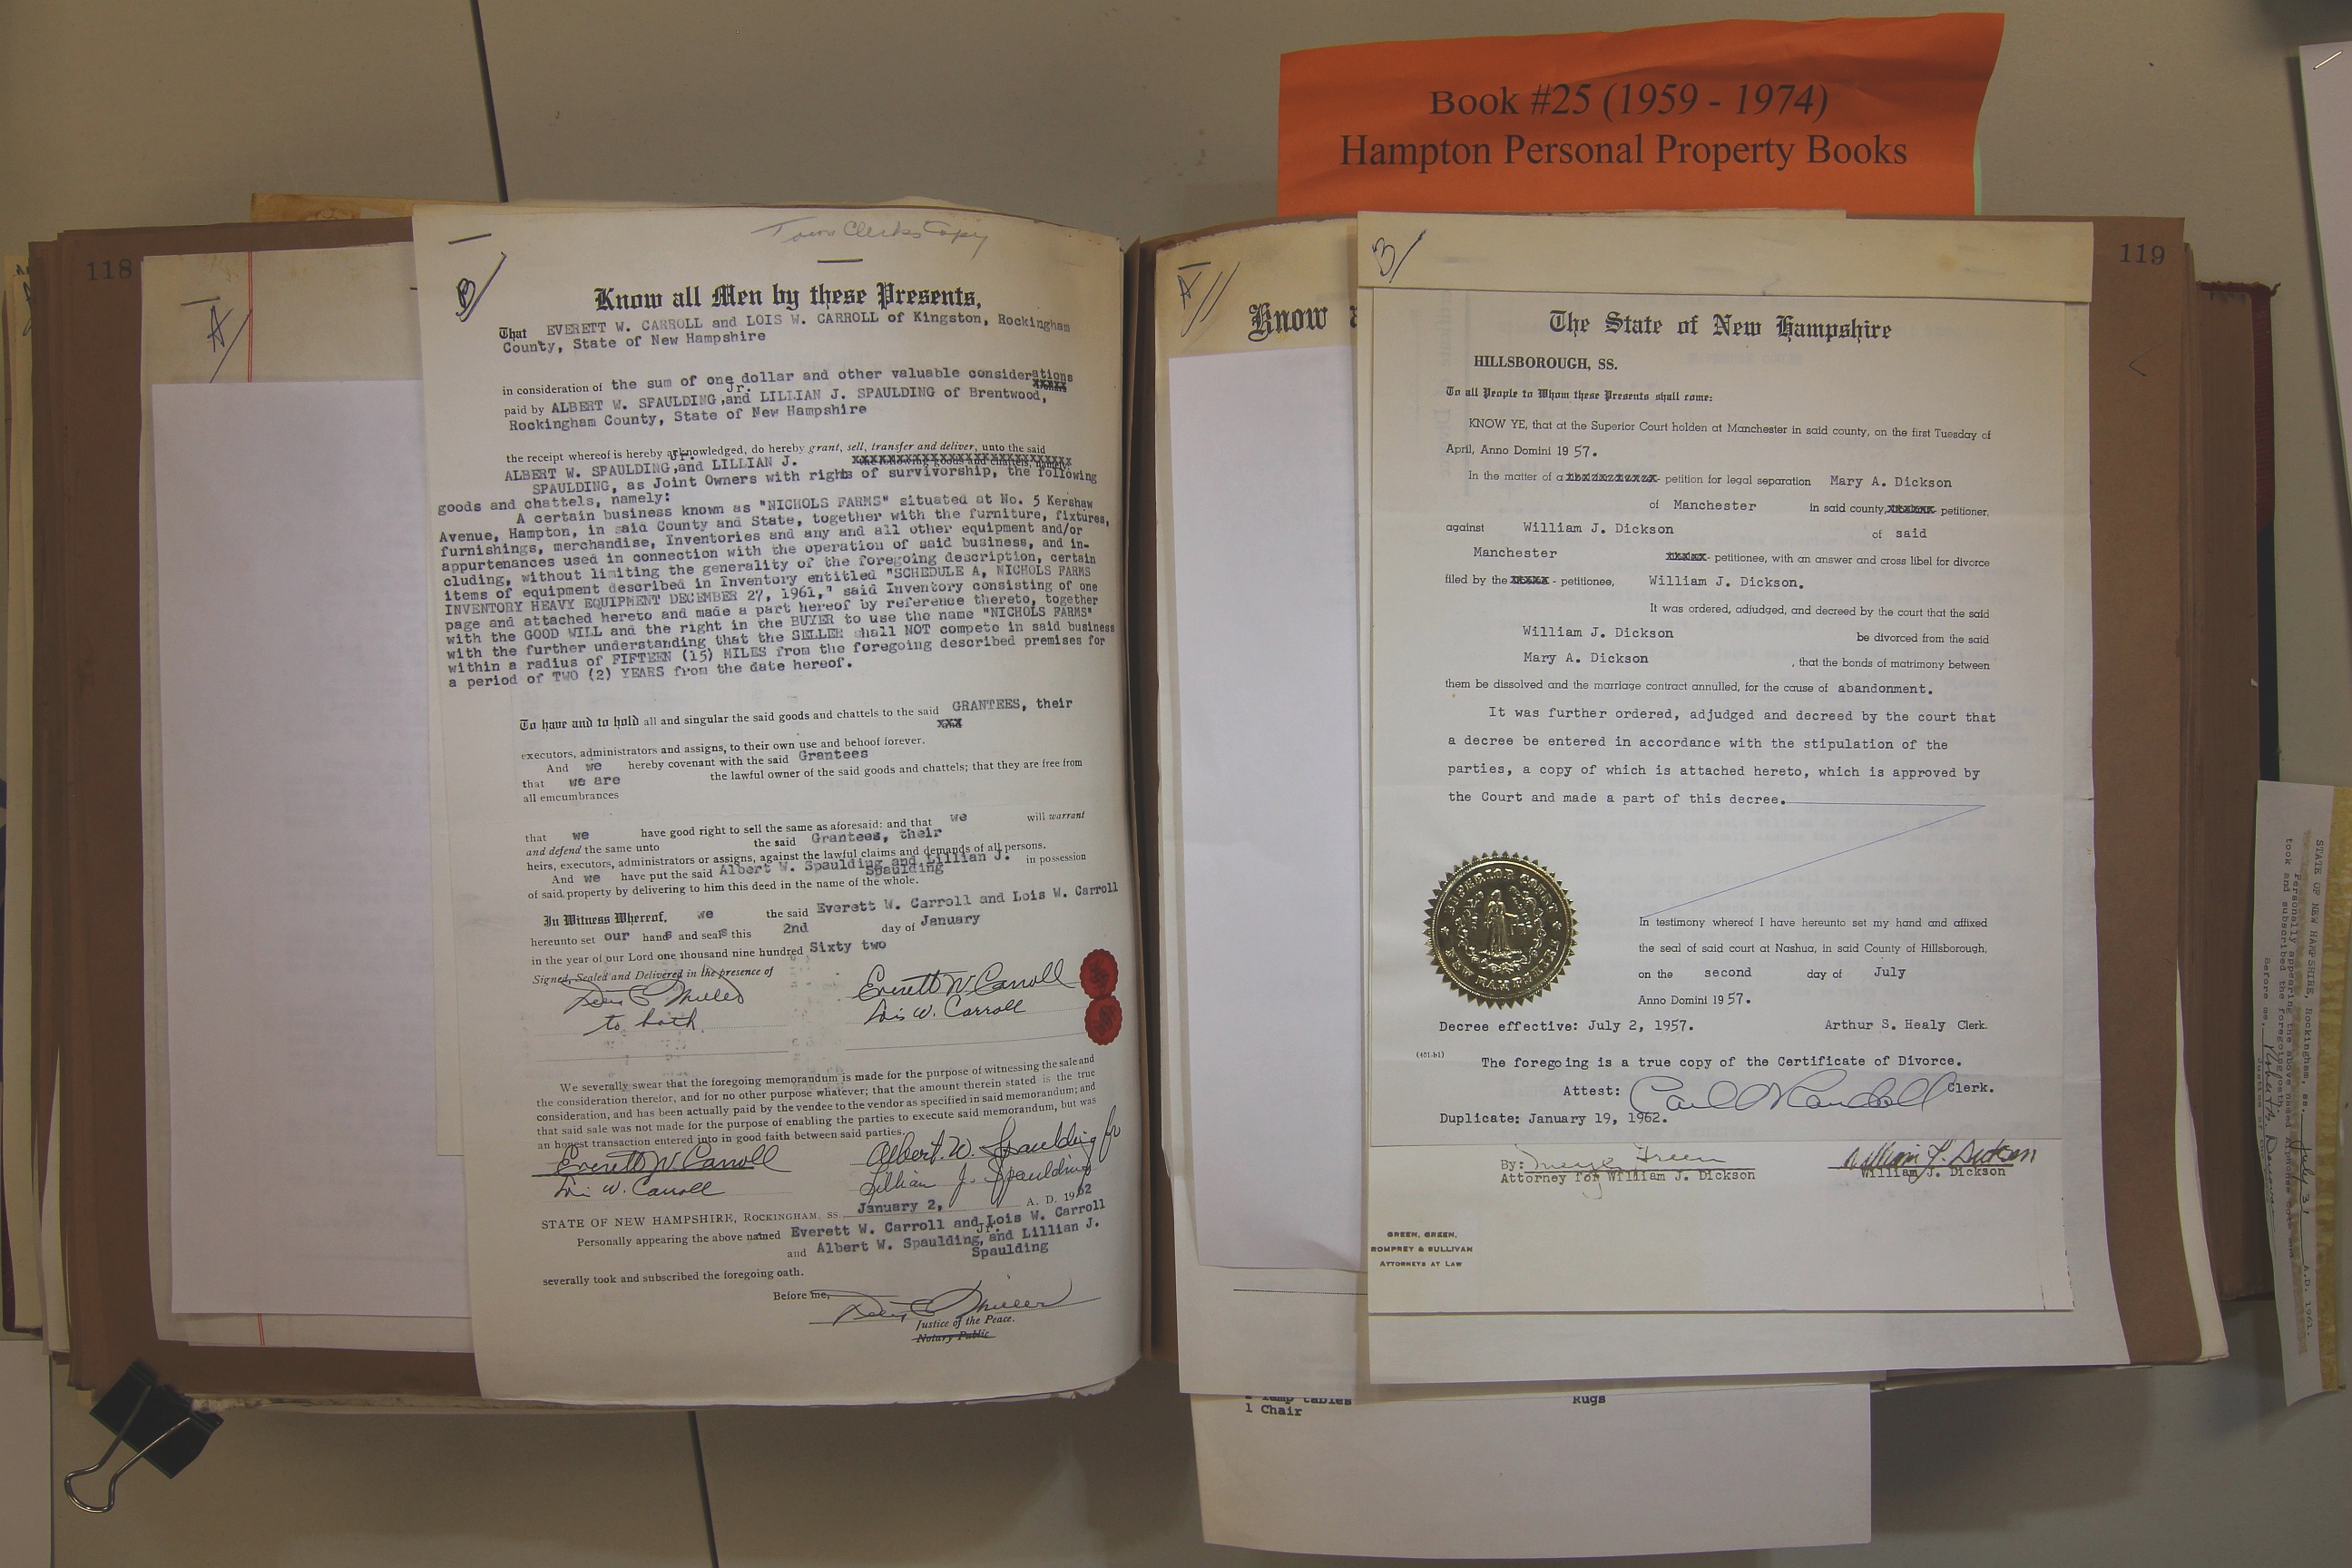 Book #25 (1959 - 1974)
Hampton Personal Property Books
118
A/
Town Clerks Copy
B/
Know all Men by these Presents,
That EVERETT W. CARROLL and LOIS W. CARROLL of Kingston, Rockingham
County, State of New Hampshire
in consideration of the sum of one dollar and other valuable considerations
Jr.
paid by ALBERT W. SPAULDING,and LILLIAN J. SPAULDING of Brentwood,
Rockingham County, State of New Hampshire
the receipt whereof is hereby acknowledged, do hereby grant, sell, transfer and deliver, unto the said
Jr.
ALBERT W. SPAULDING,and LILLIAN J. the following goods and chattels, namely:
SPAULDING, as Joint Owners with rights of survivorship, the following
goods and chattels, namely:
A certain business known as "NICHOLS FARMS" situated at No. 5 Kershaw
Avenue, Hampton, in said County and State, together with the furniture, fixtures,
furnishings, merchandise, Inventories and any and all other equipment and/or
appurtenances used in connection with the operation of said business, and in-
cluding, without limiting the generality of the foregoing description, certain
items of equipment described in Inventory entitled "SCHEDULE A, NICHOLS FARMS
INVENTORY HEAVY EQUIPMENT DECEMBER 27, 1961," said Inventory consisting of one
page and attached hereto and made a part hereof by reference thereto, together
with the GOOD WILL and the right in the BUYER to use the name "NICHOLS FARMS"
with the further understanding that the SELLER shall NOT compete in said business
within a radius of FIFTEEN (15) MILES from the foregoing described premises for
a period of TWO (2) YEARS from the date hereof.
To have and to hold all and singular the said goods and chattels to the said GRANTEES, their
xxx
executors, administrators and assigns, to their own use and behoof forever.
And we hereby covenant with the said Grantees
that we are the lawful owner of the said goods and chattels; that they are free from
all emcumbrances
that we have good right to sell the same as aforesaid: and that we will warrant
and defend the same unto the said Grantees, their
heirs, executors, administrators or assigns, against the lawful claims and demands of all persons.
And we have put the said Albert W. Spaulding and Lillian J. in possession
Spaulding
of said property by delivering to him this deed in the name of the whole.
In Witness Whereof, we the said Everett W. Carroll and Lois W. Carroll
hereunto set our hands and seals this 2nd day of January
in the year of our Lord one thousand nine hundred Sixty two
Signed, Sealed and Delivered in the presence of
Everett W. Carroll
Miller
to both.
Lois W. Carroll
We severally swear that the foregoing memorandum is made for the purpose of witnessing the sale and
the consideration therefor, and for no other purpose whatever; that the amount therein stated is the true
consideration, and has been actually paid by the vendee to the vendor as specified in said memorandum; and
that said sale was not made for the purpose of enabling the parties to execute said memorandum, but was
an honest transaction entered into in good faith between said parties.
Everett W. Carroll Albert W. Spaulding Jr
Lois W. Carroll Lillian J. Spaulding
STATE OF NEW HAMPSHIRE, ROCKINGHAM, SS. January 2, A. D. 1962
Personally appearing the above named Everett W. Carroll and Lois W. Carroll
Jr.
and Albert W. Spaulding,and Lillian J.
Spaulding
severally took and subscribed the foregoing oath.
Before me,
Miller
Justice of the Peace.
Notary Public
A//
Know
B/
119
The State of New Hampshire
HILLSBOROUGH, SS.
To all People to Whom these Presents shall come:
KNOW YE, that at the Superior Court holden at Manchester in said county, on the first Tuesday of
April, Anno Domini 1957.
In the matter of a - petition for legal separation Mary A. Dickson
of Manchester in said county, - petitioner,
against William J. Dickson of said
Manchester - petitionee, with an answer and cross libel for divorce
filed by the - petitionee, William J. Dickson.
It was ordered, adjudged, and decreed by the court that the said
William J. Dickson be divorced from the said
Mary A. Dickson , that the bonds of matrimony between
them be dissolved and the marriage contract annulled, for the cause of abandonment.
It was further ordered, adjudged and decreed by the court that
a decree be entered in accordance with the stipulation of the
parties, a copy of which is attached hereto, which is approved by
the Court and made a part of this decree.
SUPERIOR COURT
NEW HAMPSHIRE
In testimony whereof I have hereunto set my hand and affixed
the seal of said court at Nashua, in said County of Hillsborough,
on the second day of July
Anno Domini 1957.
Decree effective: July 2, 1957. Arthur S. Healy Clerk.
(401-b1)
The foregoing is a true copy of the Certificate of Divorce.
Attest: Clerk.
Duplicate: January 19, 1962.
By: Green William J. Dickson
Attorney for William J. Dickson William J. Dickson
GREEN, GREEN,
ROMPREY & SULLIVAN
ATTORNEYS AT LAW
lamp tables Rugs
1 Chair
STATE OF NEW HAMPSHIRE, Rockingham, ss. July 31 A.D. 1961.
Personally appearing the above named
took and subscribed the foregoing oath.
Before me,